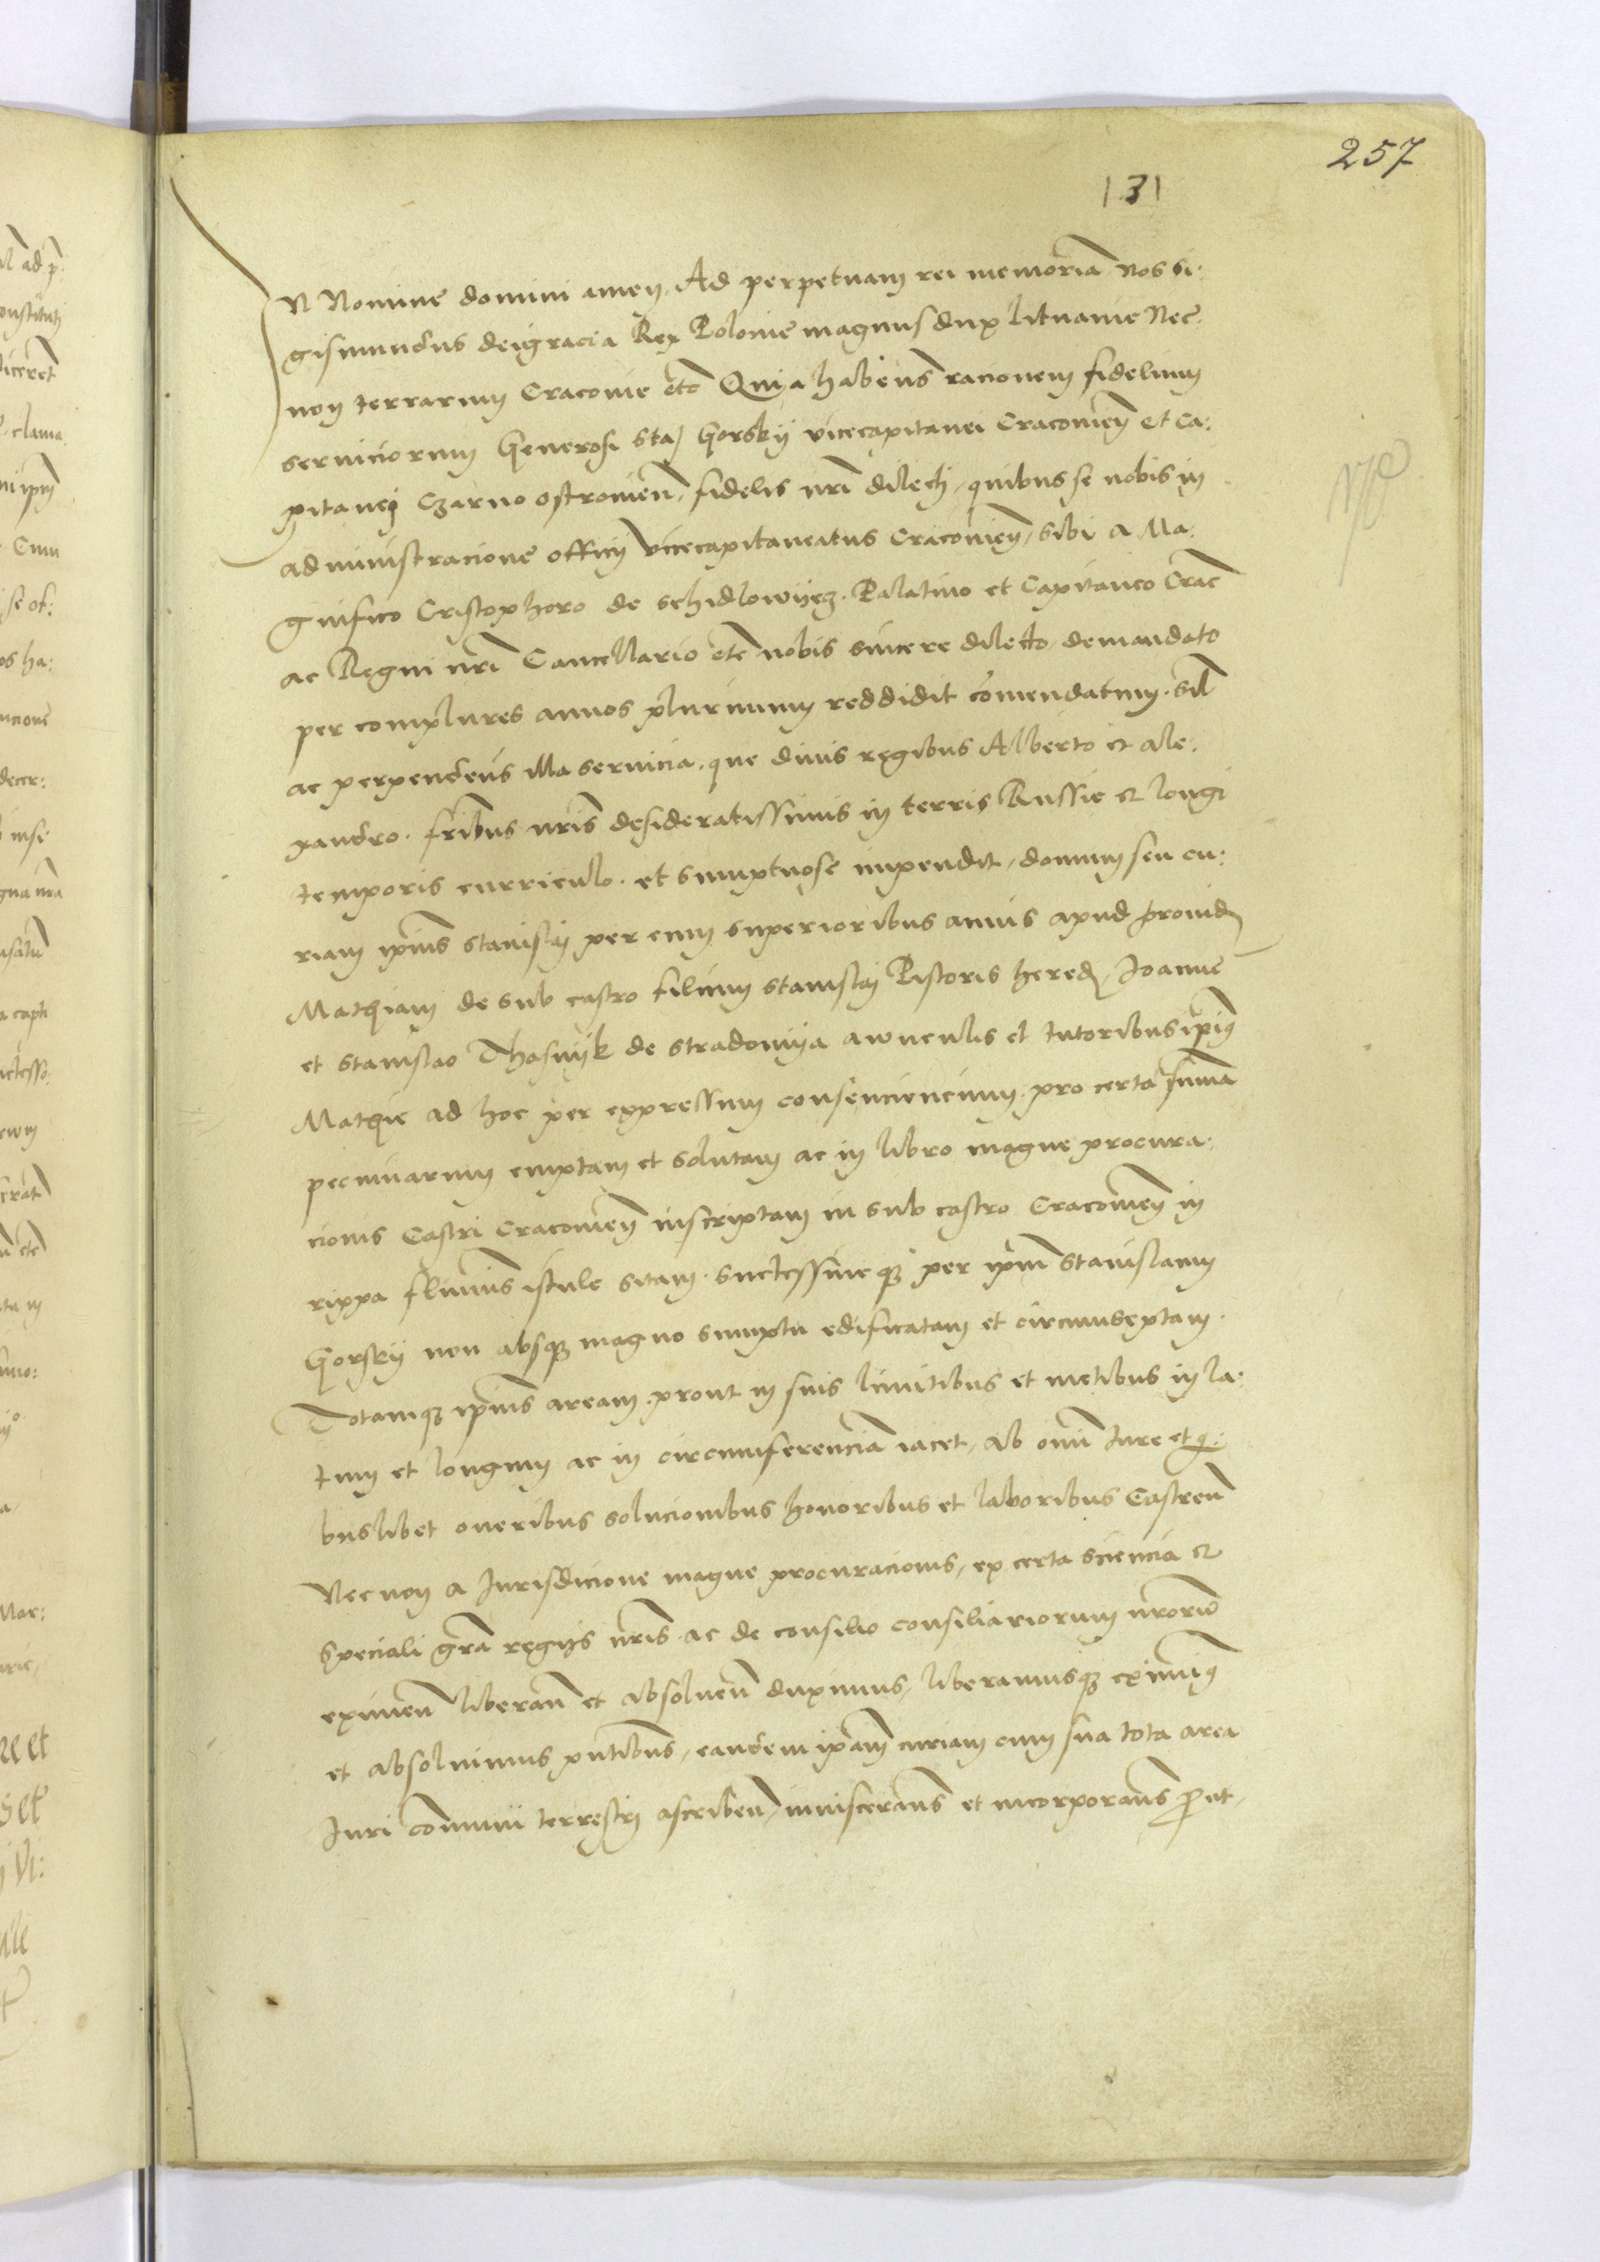 257
131
IN Nomine domini amen. Ad perpetuam rei memoriã Nos Si:
gismundus deigracia Rex Polonie magnus dux Lituanie Nec:
non terrarum Cracovie etc̃ Quia habens racionem fidelium
serviciorum Generosi Sta) Gorskij vicecapitanei Cracovieñ et Ca:
pitanei Czarno ostrovieñ, fidelis nri dilecti, quibus se nobis in
administracione officij vicecapitaneatus Cracovieñ, sibi a Ma:
gnifico Cristophoro de Schidlowijecz. Palatino et Capitaneo Crac̃
ac Regni nri Cancellario etc̃ nobis sincere dilecto, demandato
per complures annos plurimum reddidit comendatum. Sil
ac perpendens illa servicia. que divis regibus Alberto et Ale:
xandro. fribus nris desideratissimis in terris Russie et longi
temporis curriculo. et sumptuose impendit, domum seu cu:
riam ipius Stanislai per eum superioribus annis apud provid
Mathiam de sub castro filium Stanislai Pistoris hered, Joanne
et Stanislao Thasnijk de Stradomija avunculis et tutoribus ipius
Mathie ad hoc per expressum consenciencium. pro certa sũma
pecuniarum emptam et solutam ac in libro magne procura:
cionis Castri Cracovieñ inscriptam in sub castro Cracovieñ in
rippa fluvius istule sitam. successiveq3 per ipm Stanislaum
Gorskij non absq3 magno sumptu edificatam et circumseptam.
Totamq3 ipius aream. prout in suis limitibus et metibus in la:
tum et longum ac in circumferenciã iacet, ab omi Jure et q:
buslibet oneribus solucionibus honoribus et laboribus Castreñ
Nec non a Jurisdicione magne procuracionis, ex certa sciencia et
speciali grã regijs nris ac de consilio consiliariorum nrorũ
eximeñ liberañ et absolveñ duximus, liberamusq3 eximimus
et absolvimus pntibus, eandem ipam curiam cum sua tota area
Juri communi terrestri ascribeñ, inviscerañs et incorporañs Put,